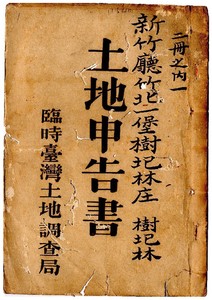 二冊之內一
新竹廳竹北一堡樹圯林庄 樹圯林
土地申告書
臨時臺灣土地調查局